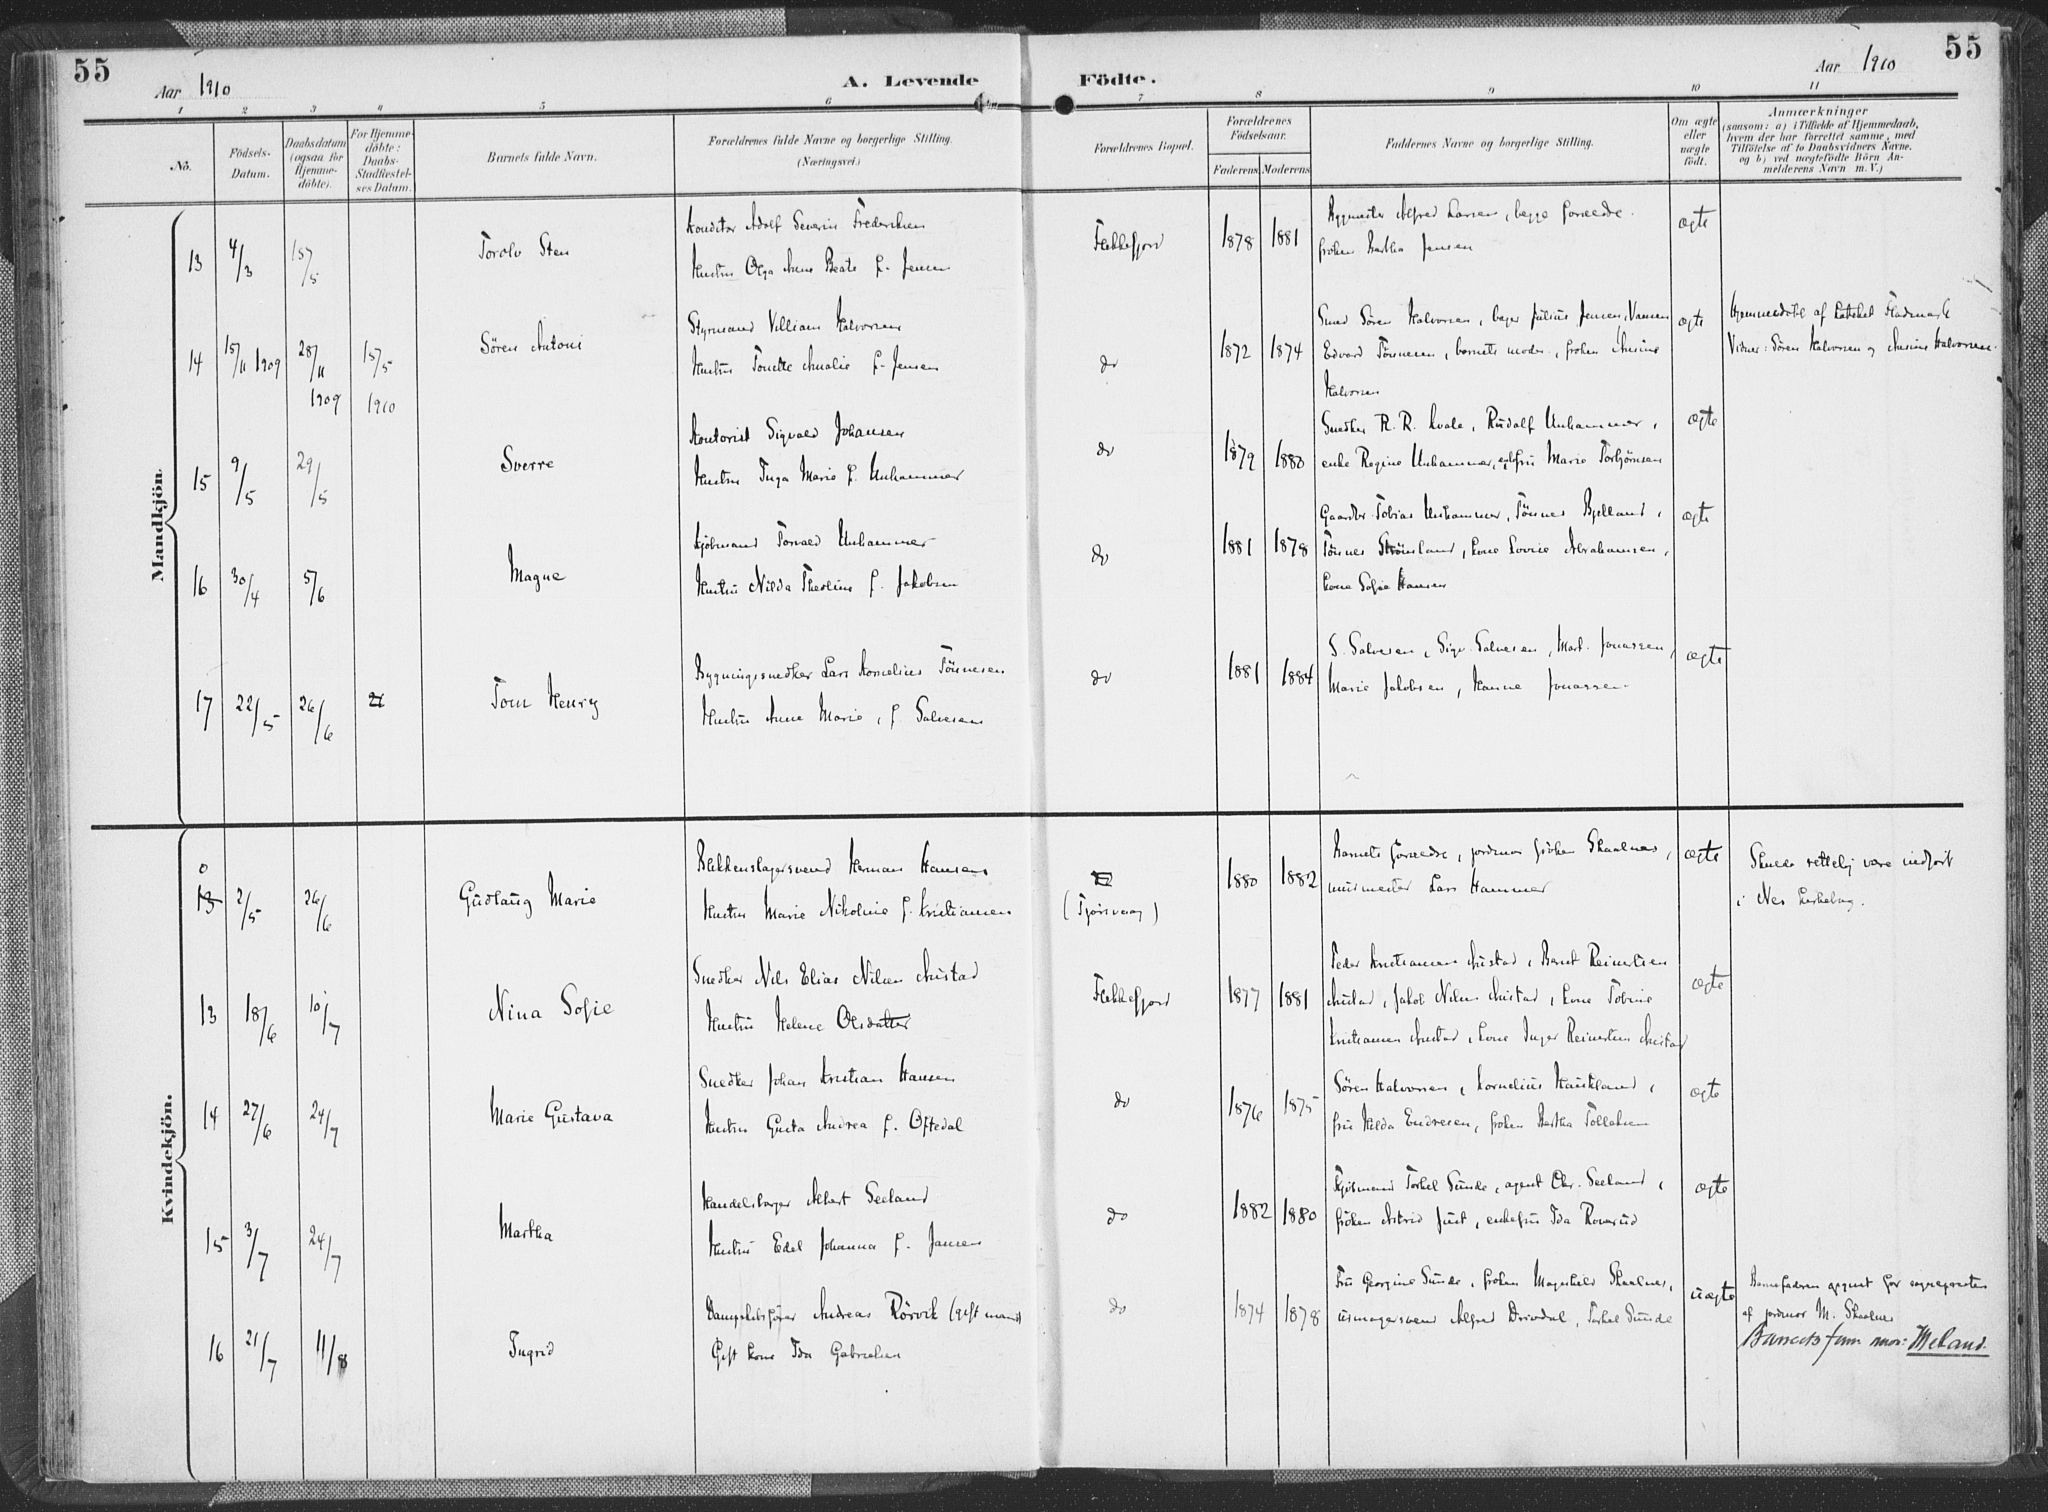 55
55
Aar 1910
A. Levende Födte.
Aar 1910
1 2 3 4 5 6 7 8 9 10 11
No.
Födsels-Datum.
Daabsdatum (ogsaa for Hjemme-döbte).
For Hjemme-döbte: Daabs-Stadfæstel-ses Datum.
Barnets fulde Navn.
Forældrenes fulde Navne og borgerlige Stilling. (Næringsvei.)
Forældrenes Bopæl.
Forældrenes Födselsaar.
Faderens Moderens
Faddernes Navne og borgerlige Stilling.
Om ægte eller uægte födt.
Anmærkninger
(saasom: a) i Tilfælde af Hjemmedaab, hvem der har forrettet samme, med Tilföielse af to Daabsvidners Navne. og b) ved uægtefödte Börn An-melderens Navn m. V.)
Mandkjön.
13 4/3 15/5 Torolv Sten
Konditor Adolf Severin Frederiksen
Hustru Olga Anne Beate f. Jensen
Flekkefjord 1878 1881
Alfred Larsen, begge forældre.
fröken Martha Jensen
ægte
14 15/11 1909 28/11 1909 15/5 1910 Sören Antoni
Styrmand Villiam Halvorsen
Hustru Tonette Amalie f. Jensen
do 1872 1874
Smed Sören Halvorsen, bager Julius Jensen,
Edvard Tönnesen, barnets moder, fröken Ansine
Halvorsen
ægte
Hjemmedöbt af
Vidner: Sören Halvorsen og Ansine Halvorsen.
15 9/5 29/5 Sverre
Kontorist Sigvald Johansen
Hustru Inga Marie f. Unhammer
do 1879 1880
Snedker R. R. Kvale, Rudolf Unhammer,
enke Regine Unhammer, Marie Torbjörnsen
ægte
16 30/4 5/6 Magne
Kjöbmand Torvald Unhammer
Hustru Nilda Theoline f. Jakobsen
do 1881 1878
Gaardbr. Tobias Unhammer, Tönnes Bjelland,
Tönnes Strömland, kone Lovise Abrahamsen,
kone Sofie Hansen
ægte
17 22/5 26/6 Tom Henry
Bygningssnedker Lars Kornelius Tönnesen
Hustru Anne Marie, f. Salvesen
do 1881 1884
S. Salvesen, Sigv. Salvesen, Mart. Jonassen,
Marie Jakobsen, Hanne Jonassen
ægte
Kvindekjön.
0
13 2/5 26/6 Gudlaug Marie
Blikkenslagersvend Herman Hansen
Hustru Marie Nikoline f. Kristiansen
(Tjörsvaag) 1880 1882
Barnets forældre, jordmor fröken Skaalnes,
murmester Lars Hammer
ægte
Skulde rettelig være indfört
i Nes kirkebog.
13 18/6 10/7 Nina Sofie
Snedker Nils Elias Nilsen Austad
Hustru Helene Olsdatter
Flekkefjord 1877 1881
Peder Kristiansen Austad, Bernt Reinertsen
Austad, Jakob Nilsen Austad, kone Tobine
Kristiansen Austad, kone Inger Reinertsen Austad
ægte
14 27/6 24/7 Marie Gustava
Snedker Johan Kristian Hansen
Hustru Gusta Andrea f. Oftedal
do 1876 1875
Sören Halvorsen, Kornelius Haukland,
fru Hilda Endresen, fröken Bertha Tollaksen
ægte
15 3/7 24/7 Martha
Handelsborger Albert Seeland
Hustru Edel Johanna f. Jansen
do 1882 1880
Kjöbmand Torkel Sunde, agent Chr. Seeland,
fröken Astrid Just, enkefru Ida
ægte
16 21/7 11/8 Ingrid
Dampskibsförer Andreas Rörvik (gift mand)
Gift kone Ida Gabrielsen
do 1874 1878
Fru Georgine Sunde, fröken Magnhild Skaalnes,
urmagersvend Alfred Drivdal, Torkel Sunde
uægte
Barnefaderen opgivet for sogneprесten
af jordmor M. Skaalnes
Barnets fam. navn: Meland.